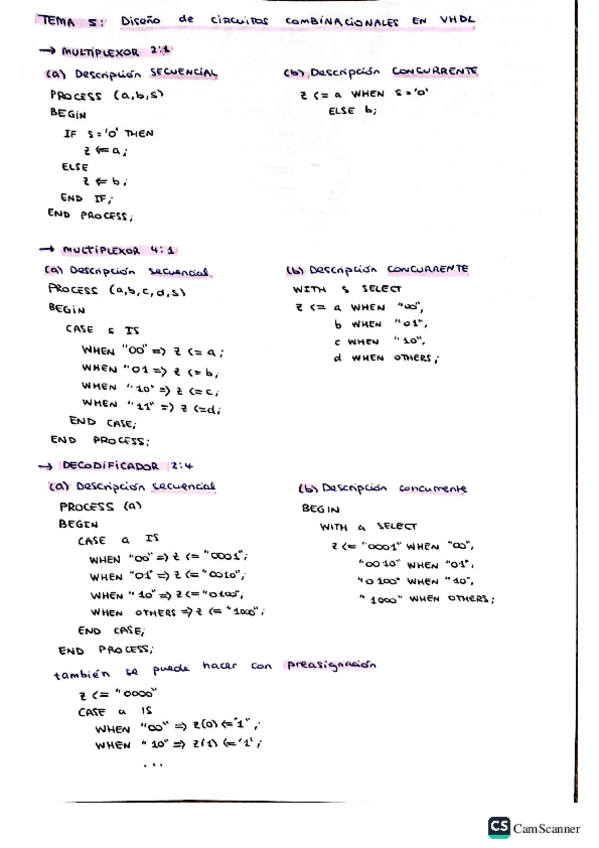 TEMA 5: Diseño de circuitos COMBINACIONALES EN VHDL
→ MULTIPLEXOR 2:1
(a) Descripción SECUENCIAL
PROCESS (a,b,s)
BEGIN
IF s='0' THEN
z <= a;
ELSE
z <= b;
END IF;
END PROCESS;
(b) Descripción CONCURRENTE
z <= a WHEN s='0'
ELSE b;
→ MULTIPLEXOR 4:1
(a) Descripción secuencial
PROCESS (a,b,c,d,s)
BEGIN
CASE s IS
WHEN "00" => z <= a;
WHEN "01 => z <= b;
WHEN "10" => z <= c;
WHEN "11" => z <= d;
END CASE;
END PROCESS;
(b) Descripción CONCURRENTE
WITH s SELECT
z <= a WHEN "00",
b WHEN "01",
c WHEN "10",
d WHEN OTHERS;
→ DECODIFICADOR 2:4
(a) Descripción secuencial
PROCESS (a)
BEGIN
CASE a IS
WHEN "00" => z <= "0001";
WHEN "01" => z <= "0010";
WHEN "10" => z <= "0100";
WHEN OTHERS => z <= "1000";
END CASE;
END PROCESS;
(b) Descripción concurrente
BEGIN
WITH a SELECT
z <= "0001" WHEN "00",
"0010" WHEN "01",
"0100" WHEN "10",
"1000" WHEN OTHERS;
también se puede hacer con preasignación
z <= "0000"
CASE a IS
WHEN "00" => z(0) <= "1";
WHEN "10" => z(1) <= '1';
...
CS CamScanner